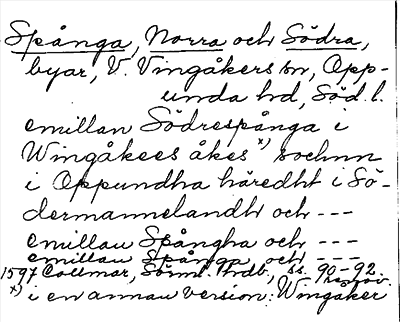 Spånga, Norra och Södra,
byar, V. Vingåkers sn, Opp-
unda hd, Söd. l.
emillan Södrespånga i
Wingåkees åkes x) sochnn
i Oppundha häredht i Sö-
dermannelandh och ---
emillau Spångha och ---
emillau Spånga och ---
1597 Collmar, Sörml. hrdb., ss. 90-92
x) i en annan version: Wingåker